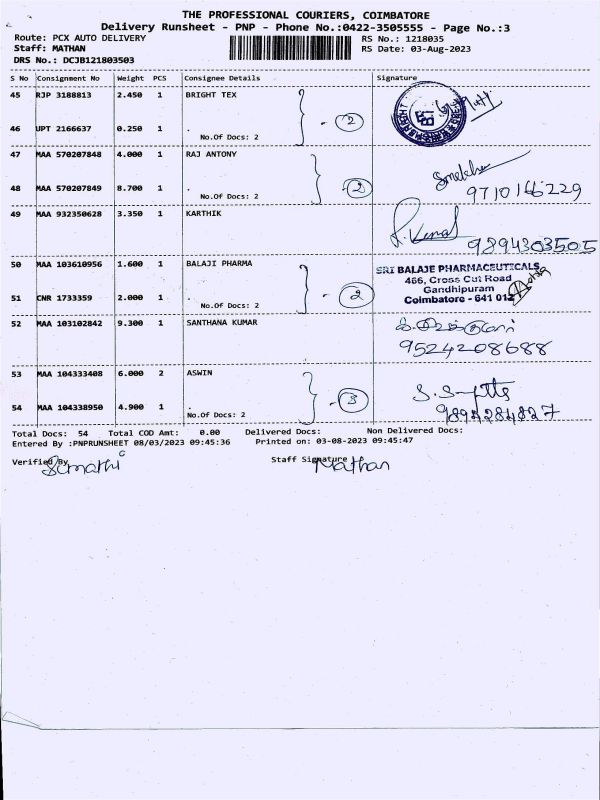 THE PROFESSIONAL COURIERS, COIMBATORE
Delivery Runsheet - PNP - Phone No.:0422-3505555 - Page No.:3
Route: PCX AUTO DELIVERY RS No.: 1218035
Staff: MATHAN RS Date: 03-Aug-2023
DRS No.: DCJB121803503
S No Consignment No Weight PCS Consignee Details Signature
45 RJP 3188813 2.450 1 BRIGHT TEX
- 2
46 UPT 2166637 0.250 1 .
No.Of Docs: 2
47 MAA 570207848 4.000 1 RAJ ANTONY
48 MAA 570207849 8.700 1 . - 2 9710166229
No.Of Docs: 2
49 MAA 932350628 3.350 1 KARTHIK
9894303505
50 MAA 103610956 1.600 1 BALAJI PHARMA SRI BALAJE PHARMACEUTICALS
466, Cross Cut Road
Gandhipuram
51 CNR 1733359 2.000 1 . - 2 Coimbatore - 641 012
No.Of Docs: 2
52 MAA 103102842 9.300 1 SANTHANA KUMAR
9524208688
53 MAA 104333408 6.000 2 ASWIN
- 3
54 MAA 104338950 4.900 1 . 9892284827
No.Of Docs: 2
Total Docs: 54 Total COD Amt: 0.00 Delivered Docs: Non Delivered Docs:
Entered By :PNPRUNSHEET 08/03/2023 09:45:36 Printed on: 03-08-2023 09:45:47
Verified By Staff Signature
Mathan